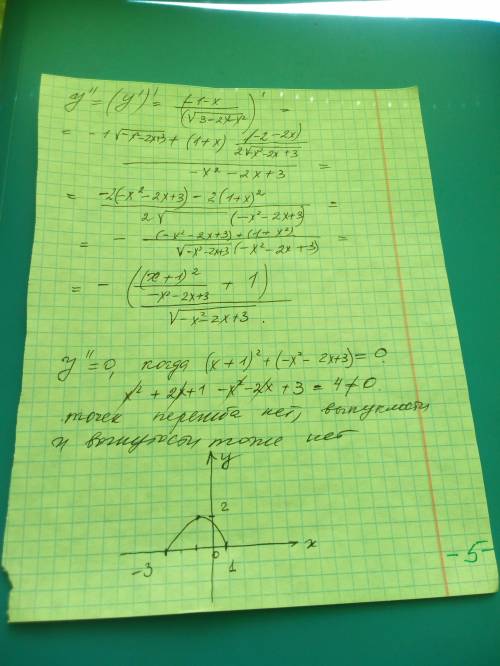 y'' = (y')' = (-1-x / (√3-2x-x²))' =
= -1√-x²-2x+3 + (1+x) (-2-2x) / 2√-x²-2x+3 / -x²-2x+3 =
= -2(-x²-2x+3) - 2(1+x)² / 2√ (-x²-2x+3) =
= - (-x²-2x+3)+(1+x²) / √-x²-2x+3 (-x²-2x+3) =
= - ((x+1)² / -x²-2x+3 + 1) / √-x²-2x+3.
y''=0, когда (x+1)²+(-x²-2x+3)=0.
x²+2x+1-x²-2x+3=4≠0.
точек перегиба нет, выпуклости
и вогнутости тоже нет
y
2
-3 0 1 x
-5-